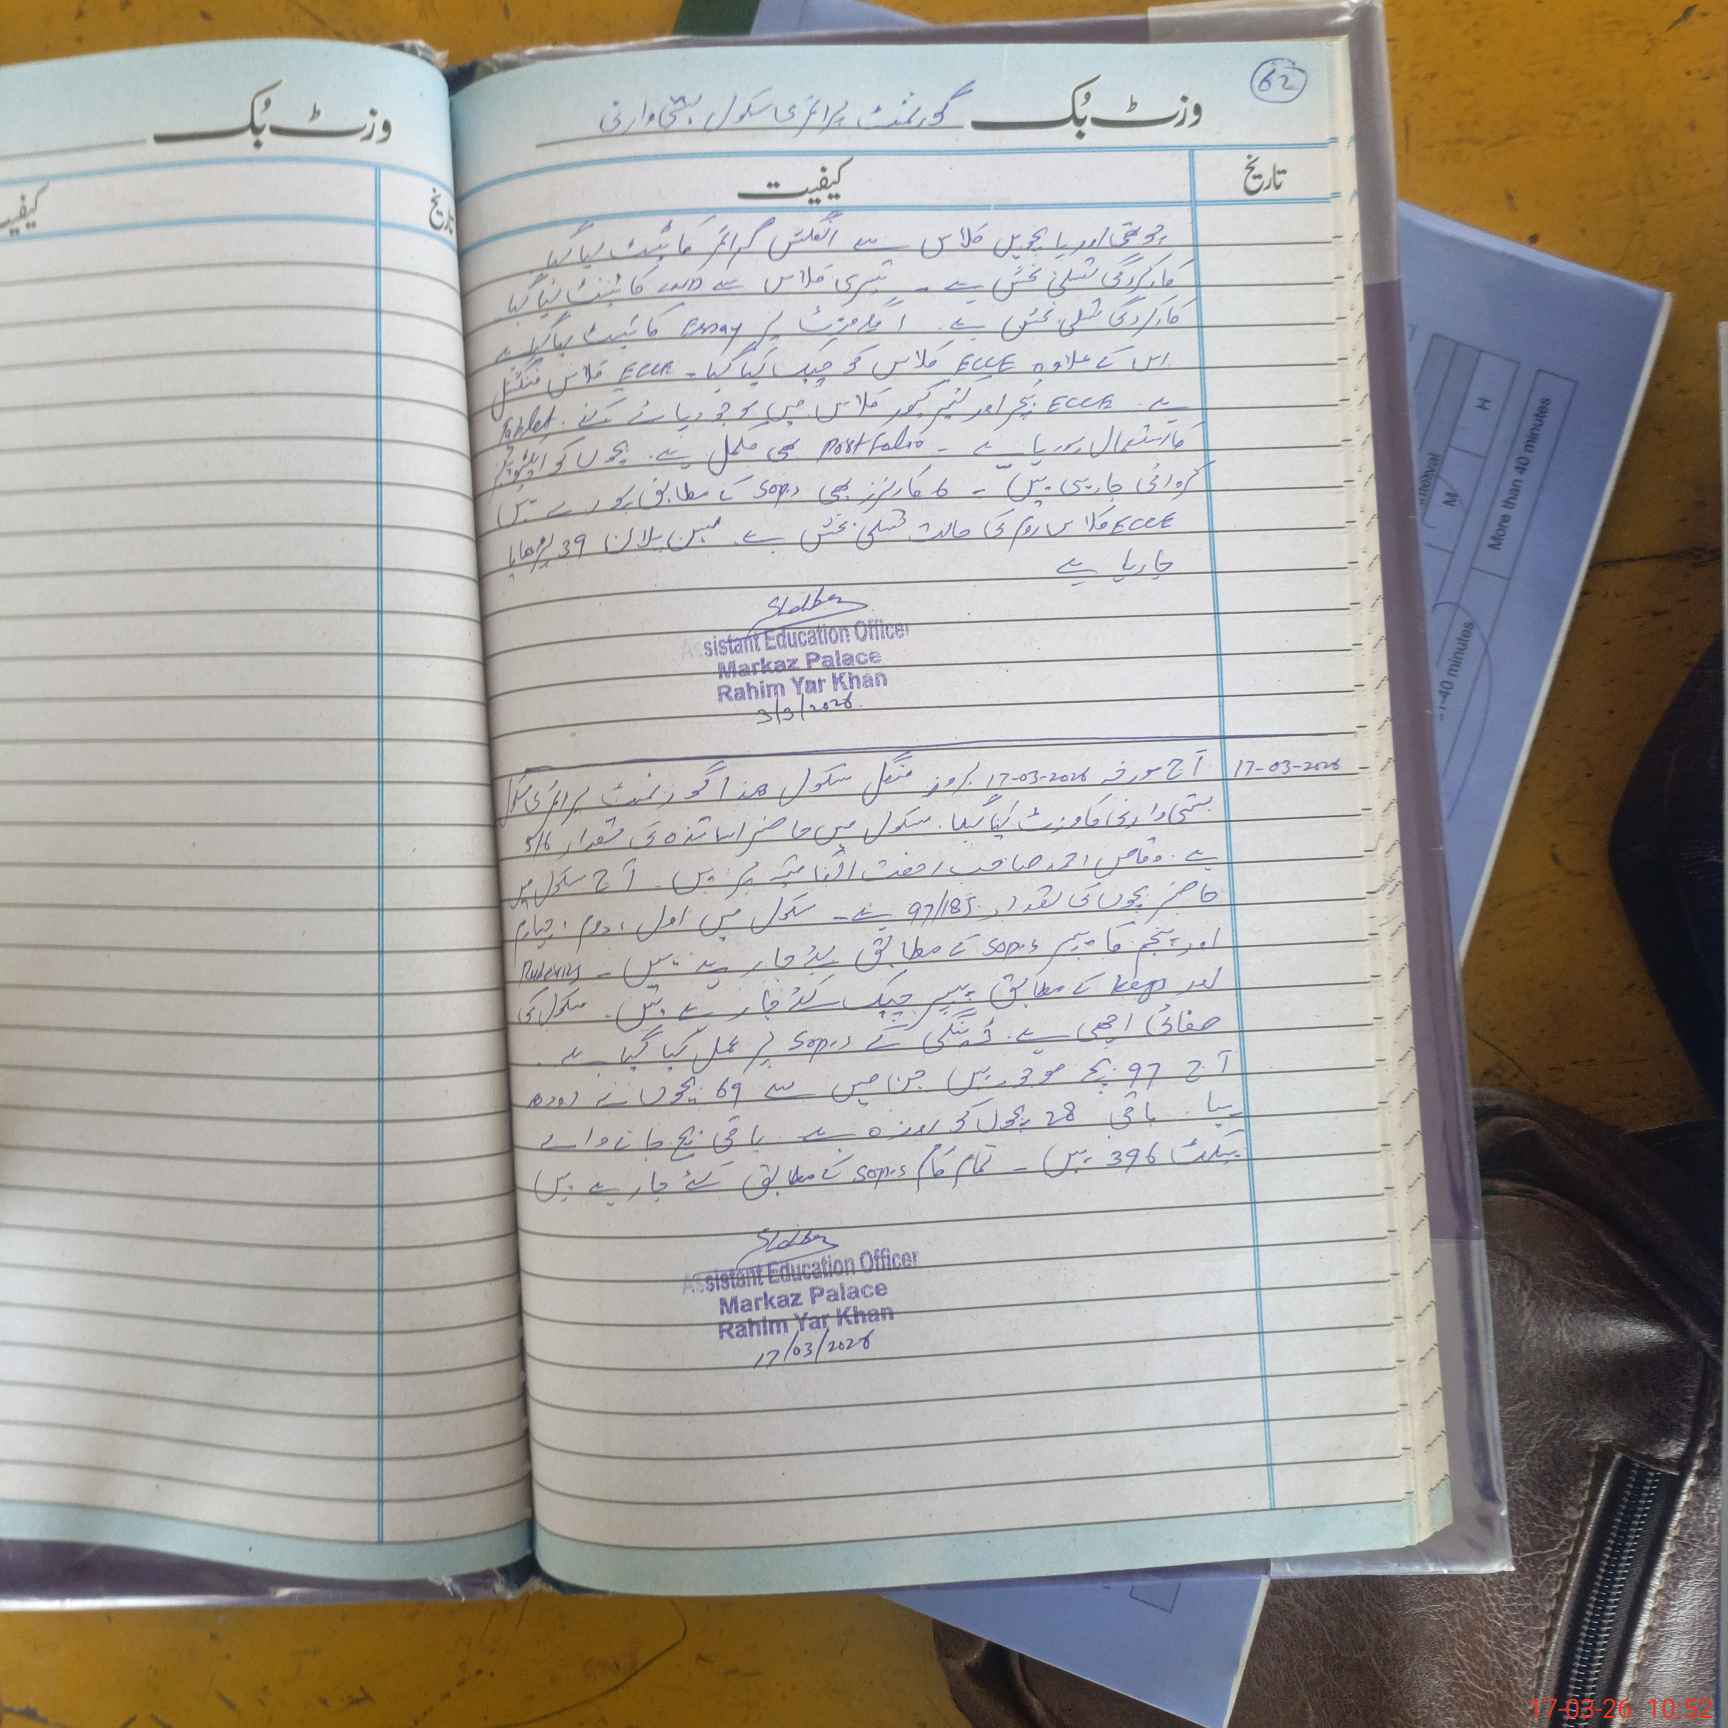 62
وزٹ بُک گورنمنٹ پرائمری سکول بستی وارنی
تاریخ
کیفیت
چوتھی اور پانچویں کلاس سے انگلش گرائمر کا ٹیسٹ لیا گیا
کارکردگی تسلی بخش ہے - تیسری کلاس سے کا ٹیسٹ لیا گیا
کارکردگی تسلی بخش ہے . پر Essay کا ٹیسٹ لیا گیا ہے
اس کے علاوہ ECCE کلاس کو چیک کیا گیا - ECCE کلاس فنکشنل
ہے . ECCE ٹیچر اور کیئر گیور کلاس میں موجود پائے گئے . Tablet
کا استعمال ہو رہا ہے - Portfolio بھی مکمل ہے . بچوں کو
کروائی جا رہی ہیں - 6 کارنرز بھی SOP,s کے مطابق ہیں
ECCE کلاس روم کی حالت تسلی بخش ہے . سبق پلان 39 پڑھایا
جا رہا ہے
Assistant Education Officer
Markaz Palace
Rahim Yar Khan
3/3/2026
17-03-2026 آج مورخہ 17-03-2026 بروز منگل سکول ھذا گورنمنٹ پرائمری سکول
بستی وارنی کا وزٹ کیا گیا . سکول میں حاضر اساتذہ کی تعداد 5/6
ہے . وقاص احمد صاحب رخصت پر ہیں . آج سکول میں
حاضر بچوں کی تعداد 97/185 ہے - سکول میں اول ، دوم ، چہارم
اور پنجم کا پیپر SOP,s کے مطابق لئے جا رہے ہیں - Rubrics
اور keys کے مطابق پیپر چیک کئے جا رہے ہیں . سکول کی
صفائی اچھی ہے . ڈینگی کے SOP,s پر عمل کیا گیا ہے .
آج 97 بچے موجود ہیں جن میں سے 69 بچوں نے دودھ
پیا . باقی 28 بچوں کو روزہ ہے . باقی بچ جانے والے
پیکٹ 396 ہیں - تمام کام SOP,s کے مطابق کئے جا رہے ہیں
Assistant Education Officer
Markaz Palace
Rahim Yar Khan
17/03/2026
وزٹ بُک
تاریخ
M
H
More than 40 minutes
-40 minutes
17-03-26 10:52